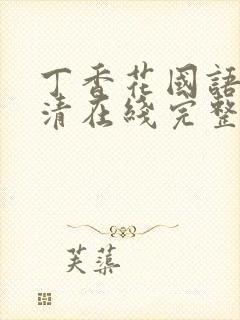 丁香花國語
清在綫完整
芙蕖